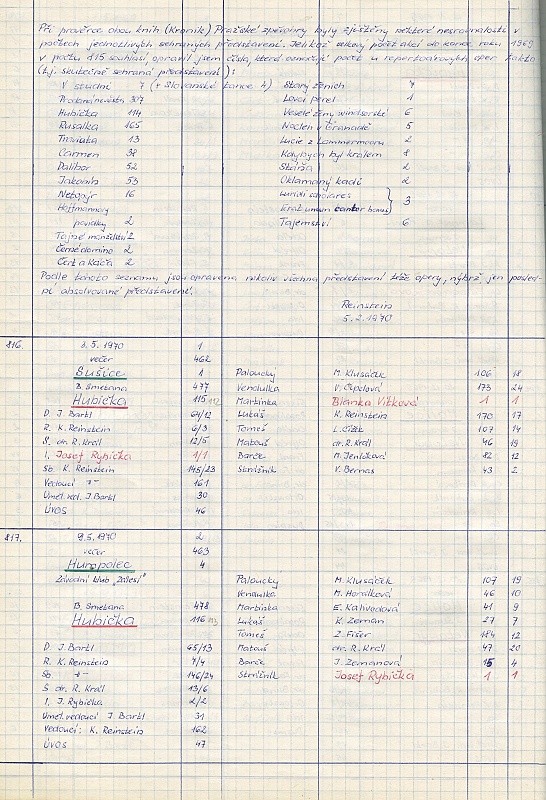 Při prověrce obou knih (Kronik) Pražské zpěvohry byly zjištěny některé nesrovnalosti v
počtech jednotlivých sehraných představení. Jelikož celkový počet akcí do konce roku 1969
v počtu 815 souhlasí, opravil jsem čísla, která označují počet u repertoárových oper takto
(t.j. skutečně sehraná představení):
V studni 7 (+ Slovanské tance 4) Starý ženich 7
Prodaná nevěsta 307 Lovci perel 1
Hubička 114 Veselé ženy windsorské 6
Rusalka 165 Nocleh v Granadě 5
Traviata 13 Lucie z Lammermooru 2
Carmen 38 Kdybych byl králem 8
Dalibor 52 Stárna 2
Jakobín 53 Oklamaný kadi 2
Netopýr 16
Hoffmannovy
povídky 2 Erat unum cantor bonus 3
Tajné manželství 2 Tajemství 6
Černé domino 2
Čert a Káča 2
Podle tohoto seznamu jsou opravena nikoliv všechna představení téže opery, nýbrž jen posled-
ní absolvované představení.
Reinstein
5.2.1970
816. 3.5.1970 1
večer 462
Sušice 1 Paloucký M. Klusáček 106 18
B. Smetana 477 Vendulka V. Čapelová 173 24
Hubička 115 Martinka Blanka Vítková 1 1
D J. Bartl 64/12 Lukáš K. Reinstein 170 17
R. K. Reinstein 6/3 Tomeš L. Čížek 107 14
S. dr. R. Král 12/5 Matouš dr. R. Král 46 19
I. Josef Rybička 1/1 Barče M. Jenlíčková 82 12
Sb. K. Reinstein 145/23 Strážník V. Bernas 43 2
Vedoucí -"- 161
Uměl. ved. J. Bartl 30
ÚVOS 46
817. 9.5.1970 2
večer 463
Humpolec 4
Závodní klub "Zálesí" Paloucký M. Klusáček 107 19
Vendulka M. Horálková 46 10
B. Smetana 478 Martinka E. Kalivodová 41 9
Hubička 116 Lukáš K. Zeman 27 7
Tomeš Z. Fišer 184 12
D J. Bartl 65/13 Matouš dr. R. Král 47 20
R. K. Reinstein 7/4 Barče J. Zemanová 15 4
Sb -"- 146/24 Strážník Josef Rybička 1 1
S dr. R. Král 13/6
I. J. Rybička 2/2
Umel. vedoucí J. Bartl 31
Vedoucí: K. Reinstein 162
ÚVOS 47